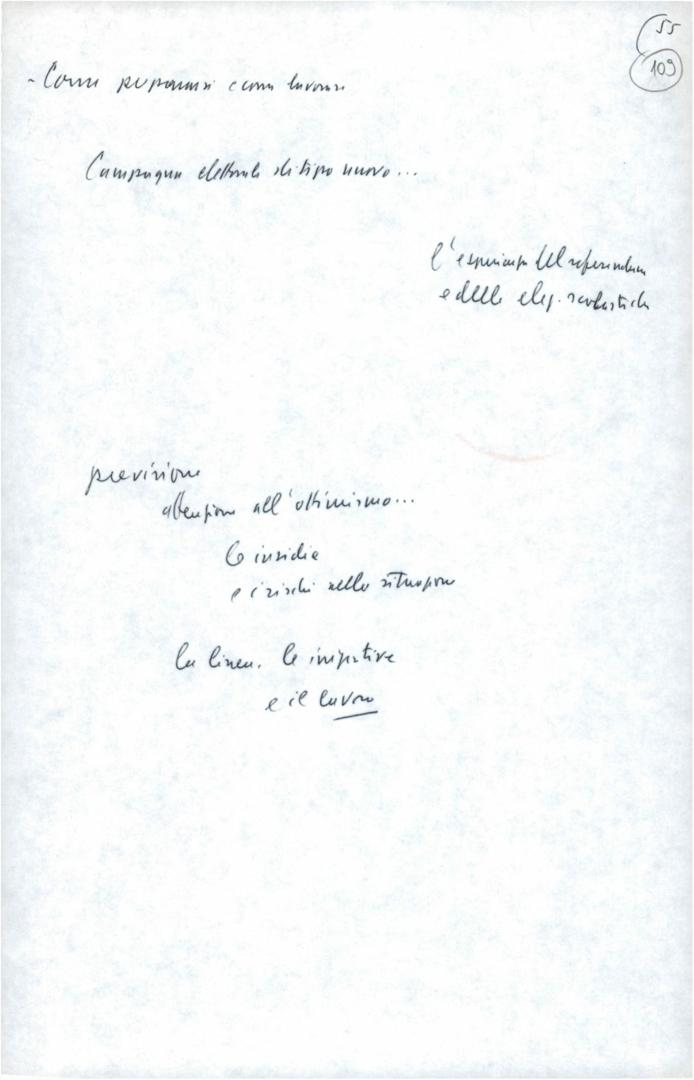 55
109
- Come prepararsi e come lavorare
Campagna elettorale di tipo nuovo...
l'esperienza del referendum
e delle elez. scolastiche
previsione
attenzione all'ottimismo...
le insidie
e i rischi nella situazione
la linea, le iniziative
e il lavoro